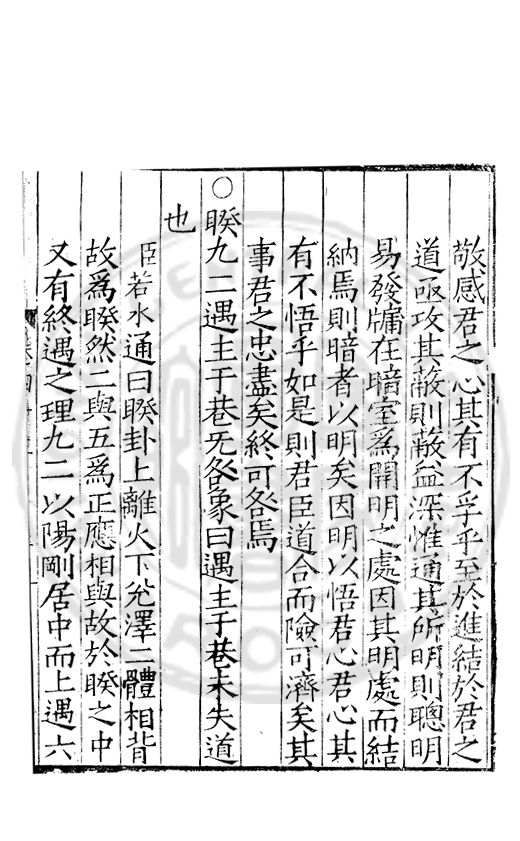 敬感君之心其有不孚乎至於進結於君之
道亟攻其蔽則蔽益深惟通其所明則聰明
易發牖在暗室爲開明之處因其明處而結
納焉則暗者以明矣因明以悟君心君心其
有不悟乎如是則君臣道合而險可濟矣其
事君之忠盡矣終可咎焉
○睽九二遇主于巷无咎象曰遇主于巷未失道
也
臣若水通曰睽卦上離火下兊澤二體相背
故爲睽然二與五爲正應相與故於睽之中
又有終遇之理九二以陽剛居中而上遇六